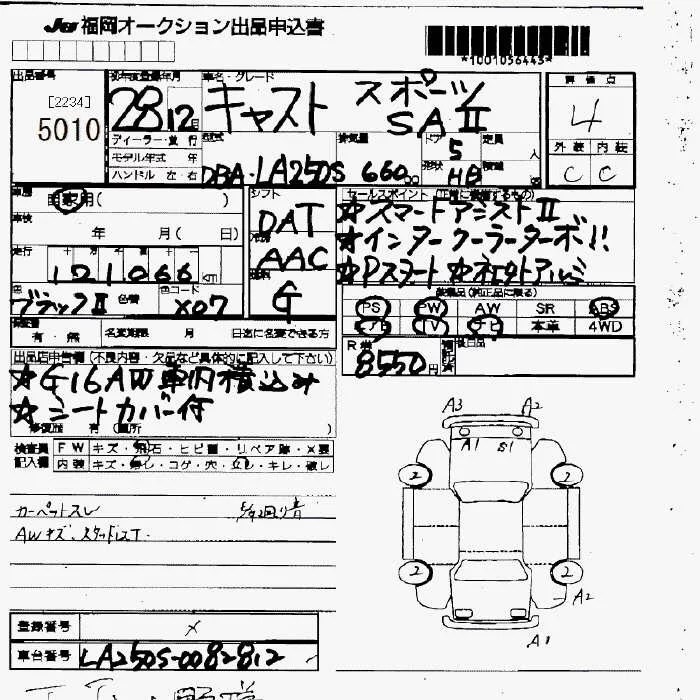 JU 福岡オークション出品申込書
*1001056443*
出品番号 初年度登録年月 車名・グレード 評価点
[2234]
5010 28 12月 キャスト スポーツ SAⅡ 4
ディーラー・並行 型式 排気量 ドア 5 定員 人 外装 内装
モデル年式 年 形状 HB 積載
ハンドル 左・右 DBA-LA250S 660cc C C
車歴 自家用( ) シフト セールスポイント(正常に装備するもの)
車検 年 月( 日) DAT ☆スマートアシストⅡ
走行 冷房 AAC ☆インタークーラーターボ!!
121066 km 燃料 ☆Pスタート ☆社外アルミ
色 色替 色コード G 装備品(純正品に限る)
ブラックⅡ X07 PS PW AW SR ABS
保証書 有・無 名変期限 月 日迄に名変できる方 エアB TV ナビ 本革 4WD
出品店申告欄(不良内容・欠品など具体的に記入して下さい) R券 8550円 後日品
☆G16AW車内積込み
☆シートカバー付
修復歴 有(箇所 )
検査員 FW キズ・飛石・ヒビ割・リペア跡・×要
記入欄 内装 キズ・汚し・コゲ・穴・スレ・キレ・破レ
カーペットスレ
AWキズ、スタッドレスT
A3 A2
A1 S1
2 2
2 2
A2
A1
登録番号 ×
車台番号 LA250S-0082812